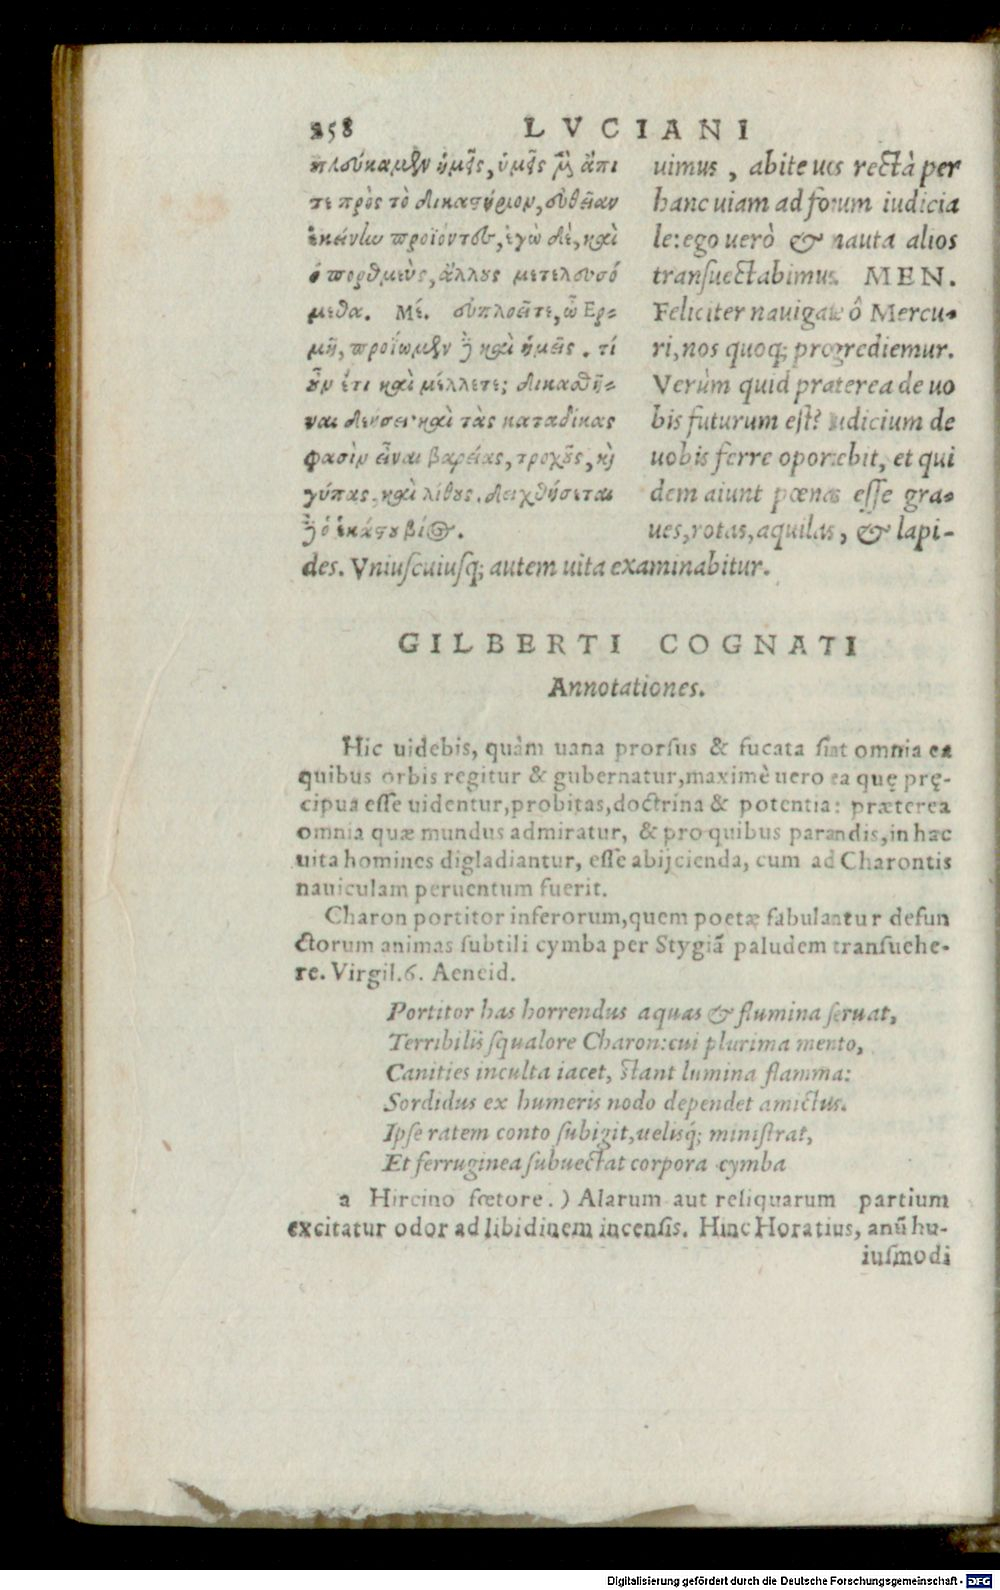 258 LVCIANI
πλούκαμεν ἡμεῖς, ὑμεῖς μὲν ἄπι
τε πρὸς τὸ δικαστήριον, εὐθεῖαν
ἐκείνην προϊόντες, ἐγὼ δὲ, καὶ
ὁ πορθμεὺς, ἄλλους μετελευσό
μεθα. Μέ. εὐπλοεῖτε, ὦ Ερ-
μῆ, προΐωμεν δὲ καὶ ἡμεῖς. τί
οὖν ἔτι καὶ μέλλετε; δικασθῆ-
ναι δεήσει· καὶ τὰς καταδίκας
φασὶν εἶναι βαρείας, τροχοὺς, καὶ
γύπας, καὶ λίθους. δειχθήσεται
δὲ ὁ ἑκάστου βίος.
uimus, abite uos rectà per
hanc uiam ad forum iudicia
le: ego uerò & nauta alios
transuectabimus. MEN.
Feliciter nauigate ô Mercu-
ri, nos quoq; progrediemur.
Verùm quid præterea de uo
bis futurum est? iudicium de
uobis ferre oportebit, et qui
dem aiunt pœnas esse gra-
ues, rotas, aquilas, & lapi-
des. Vniuscuiusq; autem uita examinabitur.
GILBERTI COGNATI
Annotationes.
Hic uidebis, quàm uana prorsus & fucata sint omnia ea
quibus orbis regitur & gubernatur, maximè uero ea quę prę-
cipua esse uidentur, probitas, doctrina & potentia: præterea
omnia quæ mundus admiratur, & pro quibus parandis, in hac
uita homines digladiantur, esse abijcienda, cum ad Charontis
nauiculam peruentum fuerit.
Charon portitor inferorum, quem poetæ fabulantur defun
ctorum animas subtili cymba per Stygiā paludem transuehe-
re. Virgil. 6. Aeneid.
Portitor has horrendus aquas & flumina seruat,
Terribilis squalore Charon: cui plurima mento,
Canities inculta iacet, stant lumina flamma:
Sordidus ex humeris nodo dependet amictus.
Ipse ratem conto subigit, uelisq́; ministrat,
Et ferruginea subuectat corpora cymba
a Hircino fœtore.) Alarum aut reliquarum partium
excitatur odor ad libidinem incensis. Hinc Horatius, anū hu-
iusmodi
Digitalisierung gefördert durch die Deutsche Forschungsgemeinschaft - DFG